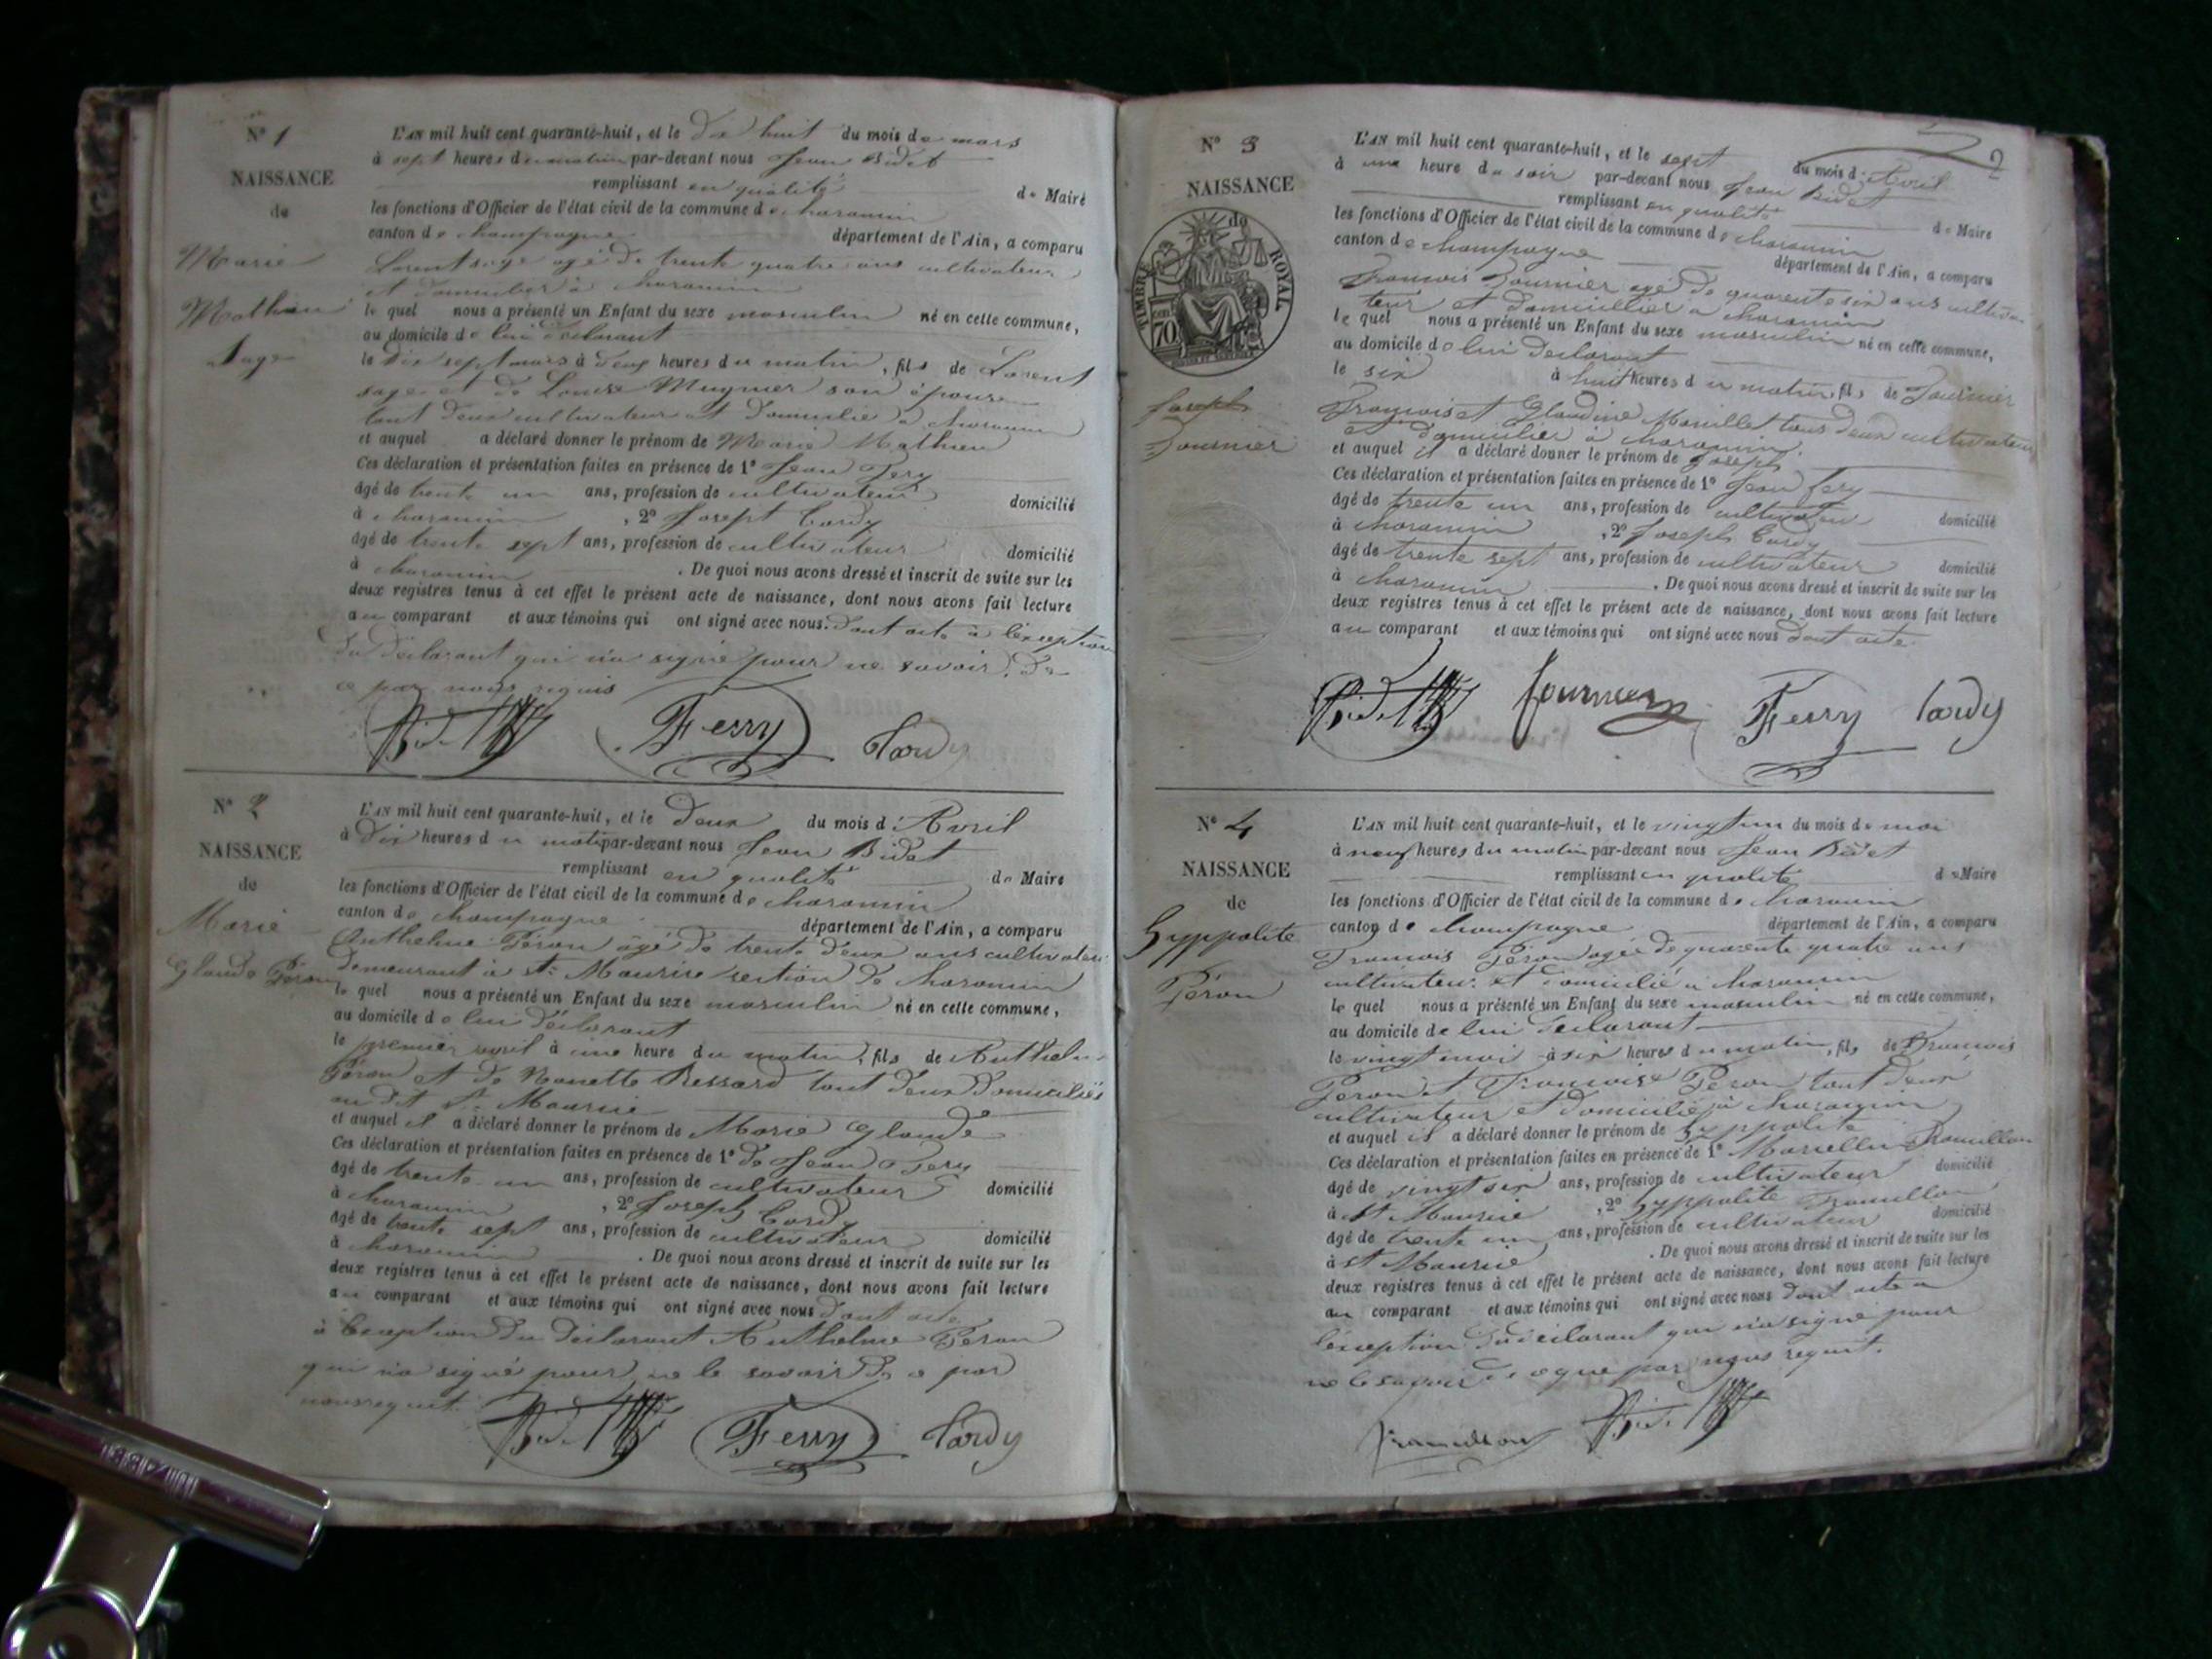 N° 1
NAISSANCE
de
Marie
Mathieu
Sage
L'AN mil huit cent quarante-huit, et le Dix huit du mois de mars
à sept heures du matin par-devant nous Jean Bidet
remplissant en qualité de Maire
les fonctions d'Officier de l'état civil de la commune de charamin
canton de champagne département de l'Ain, a comparu
Lorent sage agé de trente quatre ans cultivateur
et domicilier à charamin
le quel nous a présenté un Enfant du sexe masculin né en cette commune,
au domicile de lui déclarant
le Dix sept mars à deux heures du matin, fils de Lorent
sage et de Louise Mugnier son épouse
tout deux cultivateur et domicilié à charamin
et auquel a déclaré donner le prénom de Marie Mathieu
Ces déclaration et présentation faites en présence de 1° Jean Fery
âgé de trente un ans, profession de cultivateur domicilié
à charamin, 2° Josept Cardy
âgé de trente sept ans, profession de cultivateur domicilié
à charamin. De quoi nous avons dressé et inscrit de suite sur les
deux registres tenus à cet effet le présent acte de naissance, dont nous avons fait lecture
au comparant et aux témoins qui ont signé avec nous. Dont acte à l'exception
du déclarant qui n'a signé pour ne savoir, De
ce par nous requis
Bidet Ferry Cardy
N° 2
NAISSANCE
de
Marie
Glaude Péron
L'AN mil huit cent quarante-huit, et le Deux du mois d'Avril
à Dix heures du matin par-devant nous Jean Bidet
remplissant en qualité de Maire
les fonctions d'Officier de l'état civil de la commune de charamin
canton de champagne département de l'Ain, a comparu
Anthelme Péron âgé de trente deux ans cultivateur
demeurant à St Maurice section de charamin
le quel nous a présenté un Enfant du sexe masculin né en cette commune,
au domicile de lui déclarant
le premier avril à une heure du matin, fils de Anthelme
Péron et de Nanette Bessard tout deux Domiciliés
au dit St Maurice
et auquel il a déclaré donner le prénom de Marie Glaude
Ces déclaration et présentation faites en présence de 1° de Jean Fery
âgé de trente un ans, profession de cultivateur domicilié
à charamin, 2° Joseph Cardy
âgé de trente sept ans, profession de cultivateur domicilié
à charamin. De quoi nous avons dressé et inscrit de suite sur les
deux registres tenus à cet effet le présent acte de naissance, dont nous avons fait lecture
au comparant et aux témoins qui ont signé avec nous Dont acte
à l'exception du déclarant Anthelme Péron
qui n'a signé pour ne le savoir De ce par
nous requit.
Bidet Ferry Cardy
2
N° 3
NAISSANCE
de
TIMBRE ROYAL
70 cen
Joseph
Fournier
L'AN mil huit cent quarante-huit, et le sept du mois d'Avril
à une heure du soir par-devant nous Jean Bidet
remplissant en qualité de Maire
les fonctions d'Officier de l'état civil de la commune de charamin
canton de champagne département de l'Ain, a comparu
François Fournier agé de quarente six ans cultiva
teur et domicillier à charamin
le quel nous a présenté un Enfant du sexe masculin né en cette commune,
au domicile de lui déclarant
le six à huit heures du matin, fils de Fournier
François et Glaudine Maruillet tous deux cultivateur
et domicilier à charamin.
et auquel il a déclaré donner le prénom de Joseph
Ces déclaration et présentation faites en présence de 1° Jean fery
âgé de trente un ans, profession de cultivateur domicilié
à charamin, 2° Joseph Cardy
âgé de trente sept ans, profession de cultivateur domicilié
à charamin. De quoi nous avons dressé et inscrit de suite sur les
deux registres tenus à cet effet le présent acte de naissance, dont nous avons fait lecture
au comparant et aux témoins qui ont signé avec nous dont acte.
Bidet fournier Ferry Cardy
N° 4
NAISSANCE
de
hyppolite
Péron
L'AN mil huit cent quarante-huit, et le vingt un du mois de mai
à neuf heures du matin par-devant nous Jean Bidet
remplissant en qualité de Maire
les fonctions d'Officier de l'état civil de la commune de charamin
canton de champagne département de l'Ain, a comparu
Francois Péron agée de quarente quatre ans
cultivateur et domicilié à charamin
le quel nous a présenté un Enfant du sexe masculin né en cette commune,
au domicile de lui déclarant
le vingt mai à six heures du matin, fils de Francois
Péron et Francoise Péron tout deux
cultivateur et domicilié à charamin
et auquel il a déclaré donner le prénom de hyppolite
Ces déclaration et présentation faites en présence de 1° Marcellin Framillon
âgé de vingt six ans, profession de cultivateur domicilié
à St Maurice, 2° hyppolite Framillon
âgé de trente un ans, profession de cultivateur domicilié
à St Maurice. De quoi nous avons dressé et inscrit de suite sur les
deux registres tenus à cet effet le présent acte de naissance, dont nous avons fait lecture
au comparant et aux témoins qui ont signé avec nous Dont acte a
l'exception du déclarant qui n'a signé pour
ne le savoir de ce que par nous requit.
Framillon Bidet